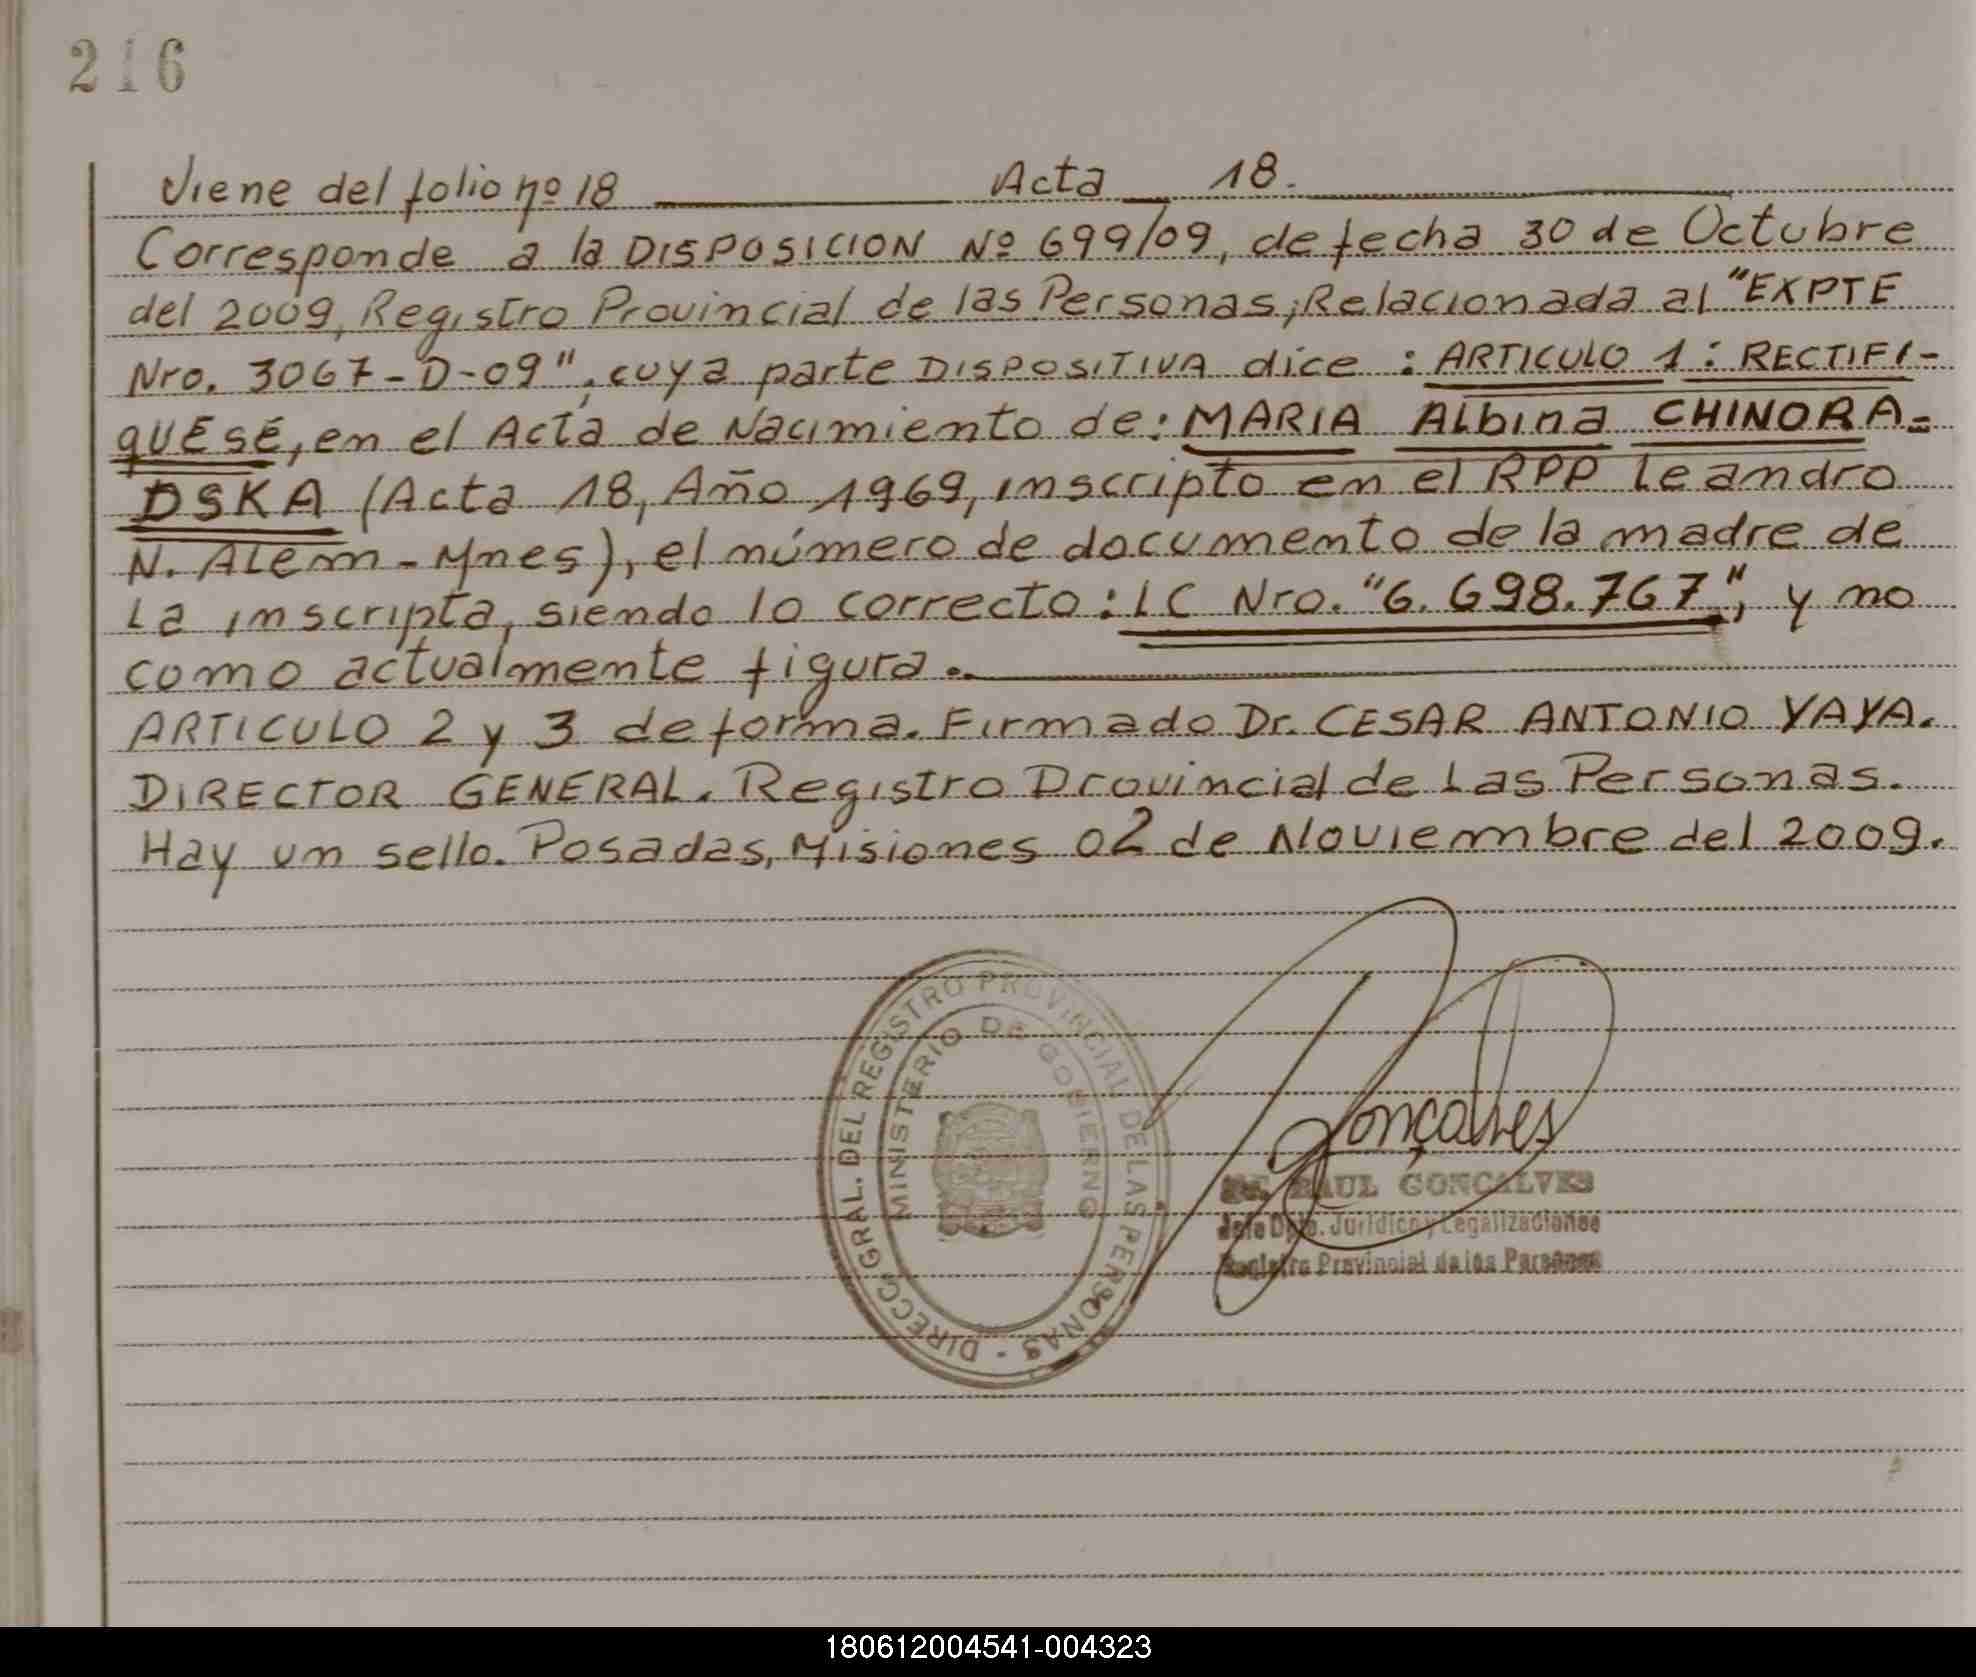 216
Viene del folio nº 18 Acta 18.
Corresponde a la DISPOSICION Nº 699/09, de fecha 30 de Octubre
del 2009, Registro Provincial de las Personas, Relacionada al "EXPTE
Nro. 3067-D-09", cuya parte DISPOSITIVA dice : ARTICULO 1 : RECTIFI-
QUESE, en el Acta de Nacimiento de: MARIA Albina CHINORA-
DSKA (Acta 18, Año 1969, inscripto en el RPP Leandro
N. ALEM - Mnes), el número de documento de la madre de
La inscripta, siendo lo correcto: LC Nro. "6.698.767", y no
como actualmente figura.
ARTICULO 2 y 3 de forma. Firmado Dr. CESAR ANTONIO YAYA.
DIRECTOR GENERAL. Registro Provincial de Las Personas.
Hay un sello. Posadas, Misiones 02 de Noviembre del 2009.
DIRECC. GRAL. DEL REGISTRO PROVINCIAL DE LAS PERSONAS -
MINISTERIO DE GOBIERNO
Gonçalves
RAUL GONCALVES
Jefe Dpto. Jurídico y Legalizaciones
Registro Provincial de las Personas
180612004541-004323